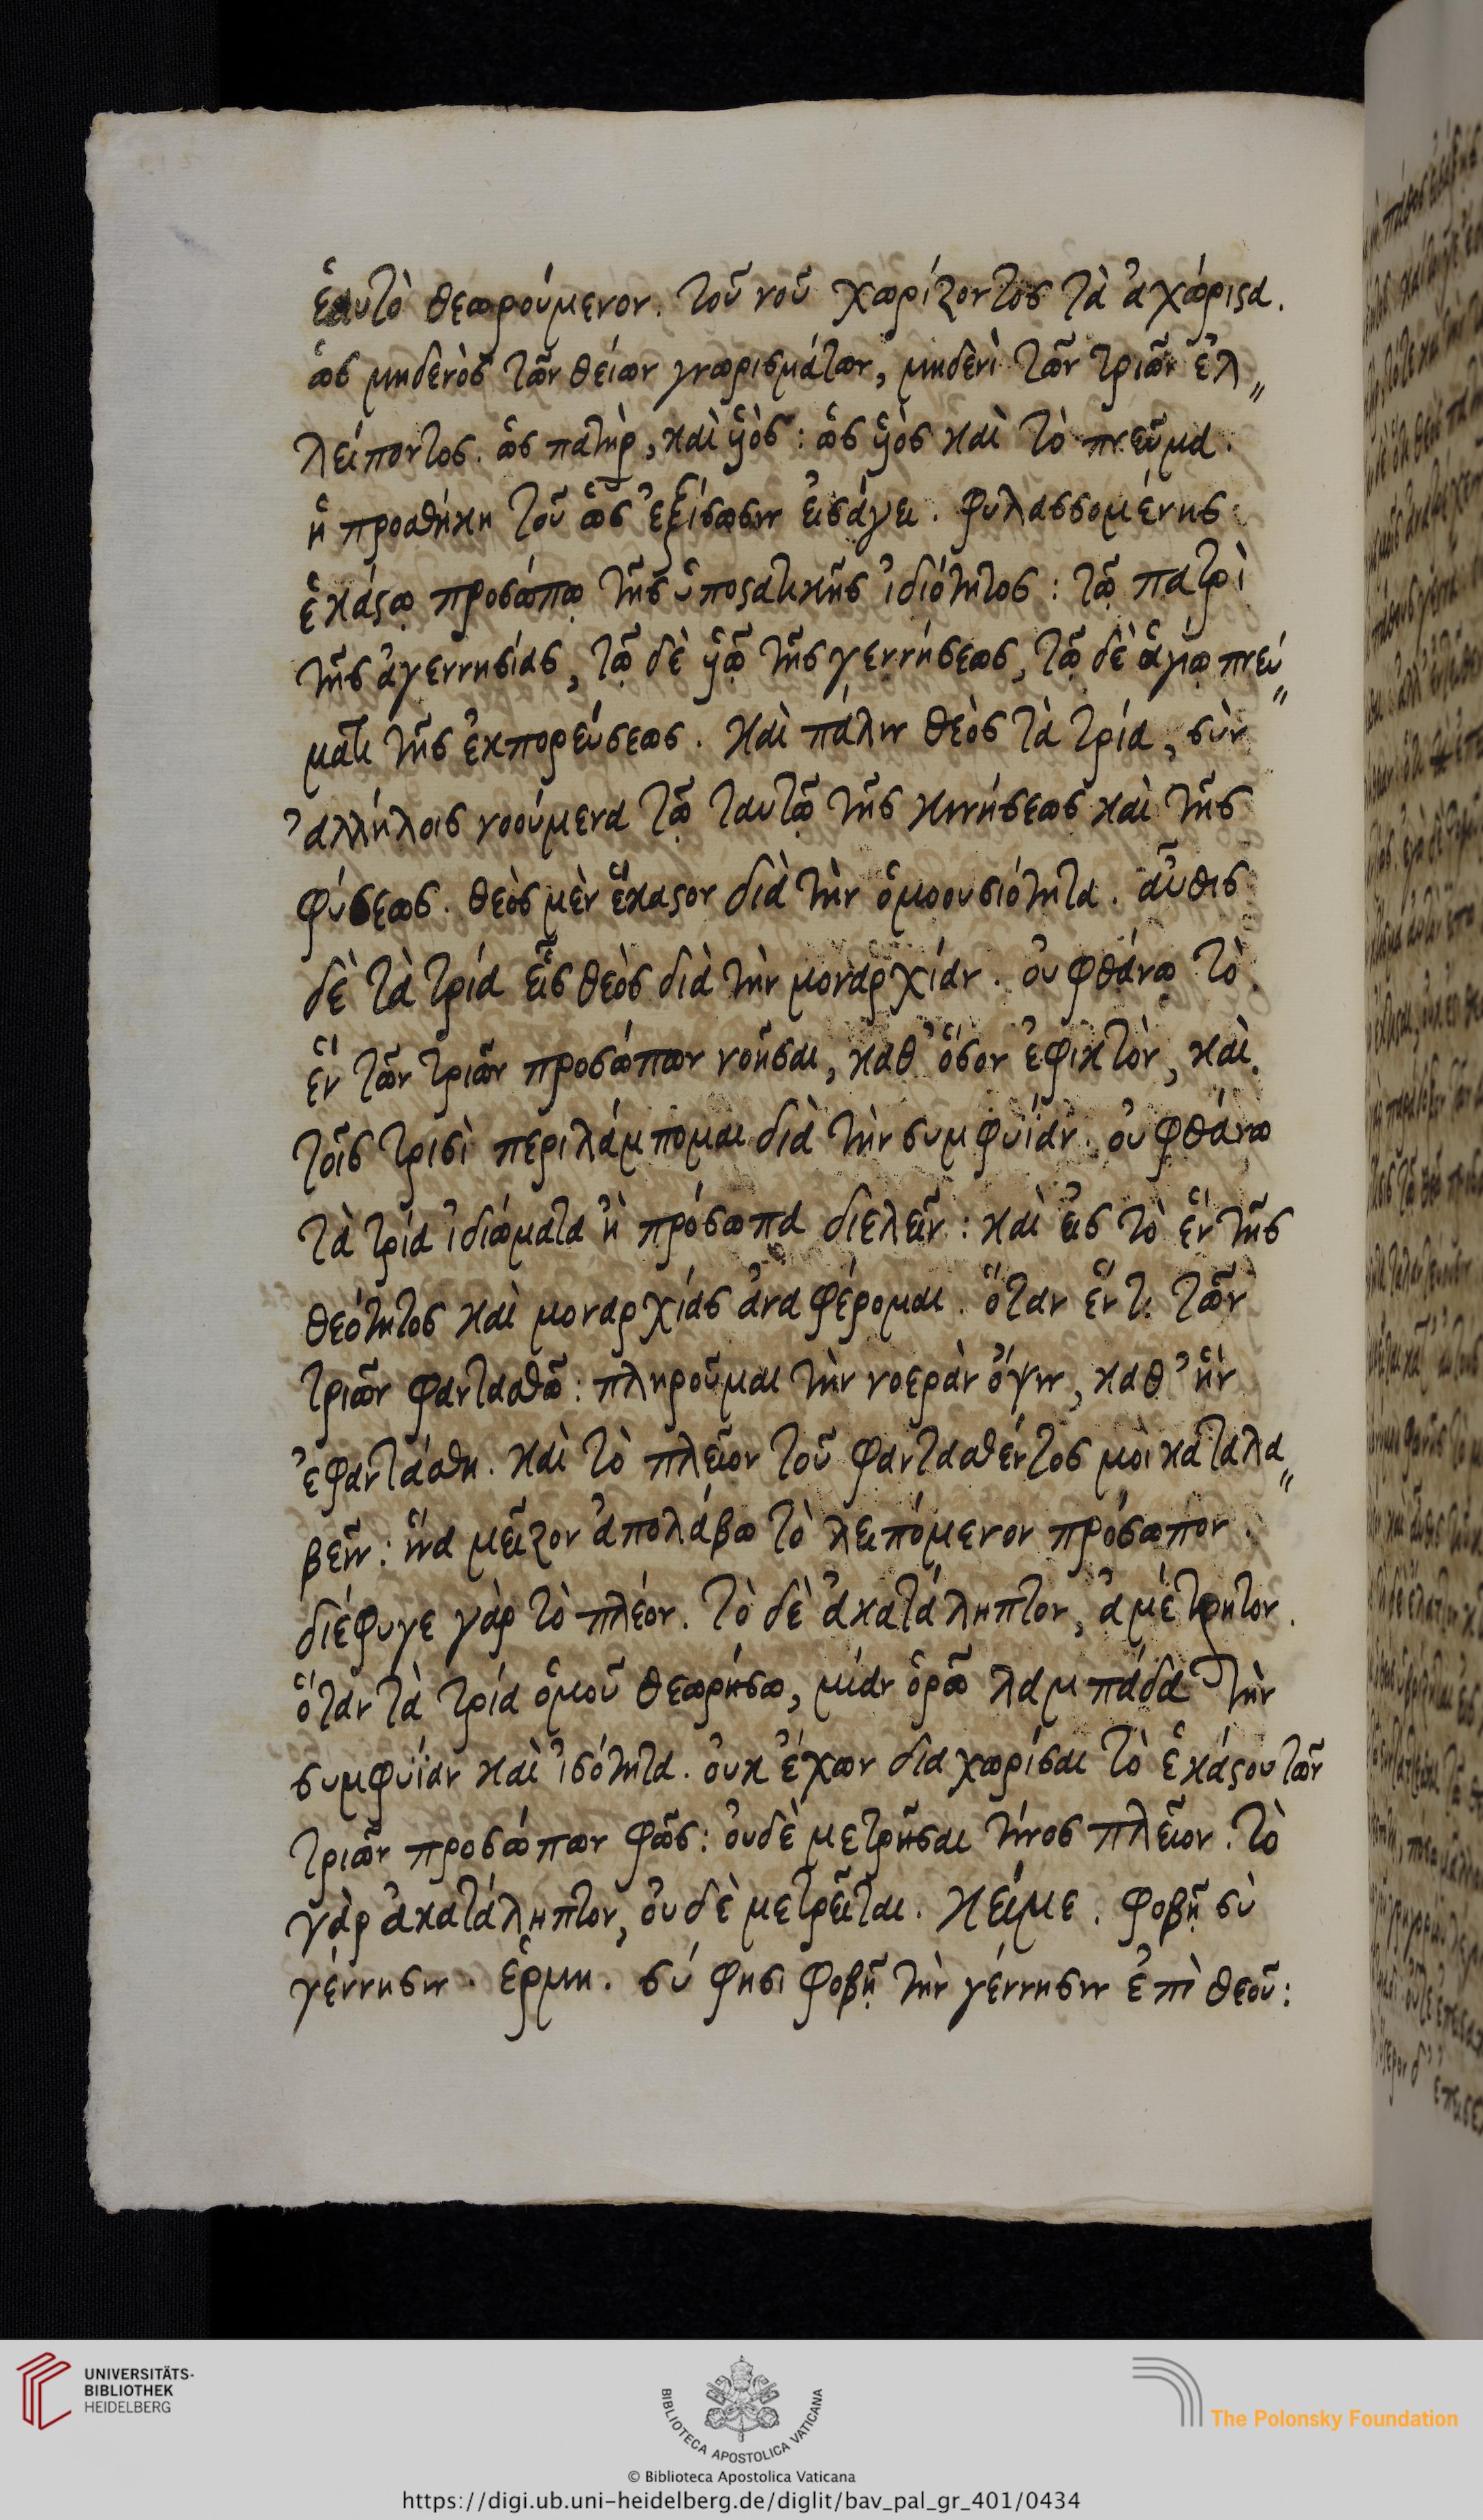 ἑαυτὸ θεωρούμενον. τοῦ νοῦ χωρίζοντος τὰ ἀχώριστα.
ὡς μηδενὸς τῶν θείων γνωρισμάτων, μηδενὶ τῶν τριῶν ἐλ〃
λείποντος. ὡς πατὴρ, καὶ ὑιὸς: ὡς ὑιὸς καὶ τὸ πνεῦμα.
ἡ προσθήκη τοῦ ὡς ἐξίσωσιν εἰσάγει. φυλασσομένης
ἑκάστῳ προσώπῳ τῆς ὑποστατικῆς ἰδιότητος: τῷ πατρὶ
τῆς ἀγεννησίας, τῷ δὲ ὑιῷ τῆς γεννήσεως, τῷ δὲ ἁγίῳ πνεύ〃
ματι τῆς ἐκπορεύσεως. καὶ πάλιν θεὸς τὰ τρία, σὺν
ἀλλήλοις νοούμενα τῷ ταυτῷ τῆς κινήσεως καὶ τῆς
φύσεως. θεὸς μὲν ἕκαστον διὰ τὴν ὁμοουσιότητα. αὖθις
δὲ τὰ τρία εἷς θεὸς διὰ τὴν μοναρχίαν. οὐ φθάνω τὸ
ἓν τῶν τριῶν προσώπων νοῆσαι, καθ' ὅσον ἐφικτὸν, καὶ
τοῖς τρισὶ περιλάμπομαι διὰ τὴν συμφυΐαν. οὐ φθάνω
τὰ τρία ἰδιώματα ἢ πρόσωπα διελεῖν: καὶ εἰς τὸ ἓν τῆς
θεότητος καὶ μοναρχίας ἀναφέρομαι. ὅταν ἕν τι τῶν
τριῶν φαντασθῶ: πληροῦμαι τὴν νοερὰν ὄψιν, καθ' ἣν
ἐφαντάσθη. καὶ τὸ πλεῖον τοῦ φαντασθέντος μοὶ καταλα〃
βεῖν: ἵνα μεῖζον ἀπολάβω τὸ λειπόμενον πρόσωπον.
διέφυγε γὰρ τὸ πλέον. τὸ δὲ ἀκατάληπτον, ἀμέτρητον.
ὅταν τὰ τρία ὁμοῦ θεωρήσω, μίαν ὁρῶ λαμπάδα τὴν
συμφυΐαν καὶ ἰσότητα. οὐκ ἔχων διαχωρίσαι τὸ ἑκάστου τῶν
τριῶν προσώπων φῶς: οὐδὲ μετρῆσαι τίνος πλεῖον. τὸ
γὰρ ἀκατάληπτον, οὐδὲ μετρεῖται. κείμε. φοβῇ σὺ
γέννησιν. ἑρμη. σύ φησι φοβῇ τὴν γέννησιν ἐπὶ θεοῦ:
UNIVERSITÄTS-
BIBLIOTHEK
HEIDELBERG
BIBLIOTECA APOSTOLICA VATICANA
The Polonsky Foundation
© Biblioteca Apostolica Vaticana
https://digi.ub.uni-heidelberg.de/diglit/bav_pal_gr_401/0434